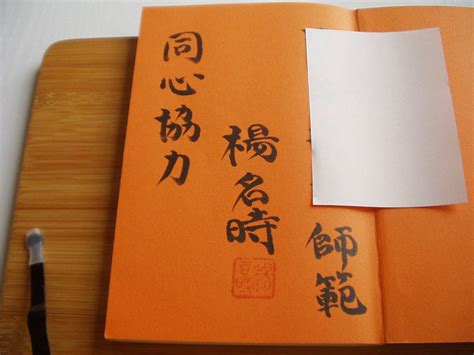 師範
楊名時
同心協力